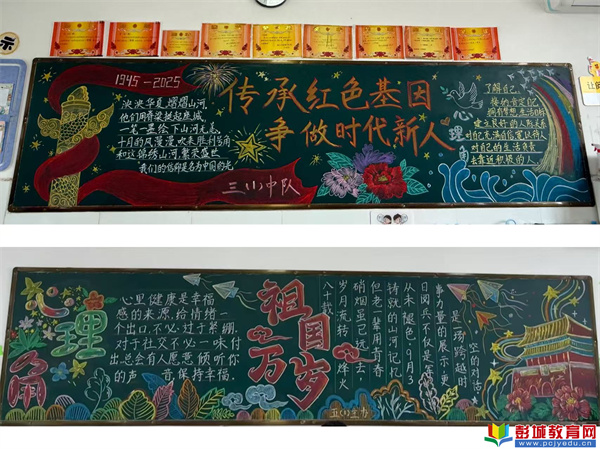 1945-2025
泱泱华夏,熠熠山河,
他们用脊梁挺起
一笔一墨绘下山河无恙,
十月的风漫漫,吹来胜利号角
和这锦绣山河,繁荣盛世
我们的信仰是名为中国的光
传承红色基因
争做时代新人
三(1)中队
心理角
了解自己,
接纳肯定自己
对自己充满自信
对自己的生活负责
去靠近积极的人.
示
心理角
心里健康是幸福
感的来源,给情绪一
个出口,不必过于紧绷,
对于社交不必一味付
出,总会有人愿意倾听你
的声音,保持幸福.
祖国万岁
八十载
岁月流转,烽火
硝烟虽已远去,
但老一辈用青春
铸就的山河记忆
从未褪色.9月3
日阅兵不仅是军
事力量的展示,更
是一场跨越时
空的对话
五(1)中队
彭城教育网
www.pcjyedu.cn